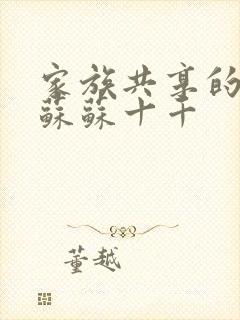 家族共享的
蘇蘇十十
董越